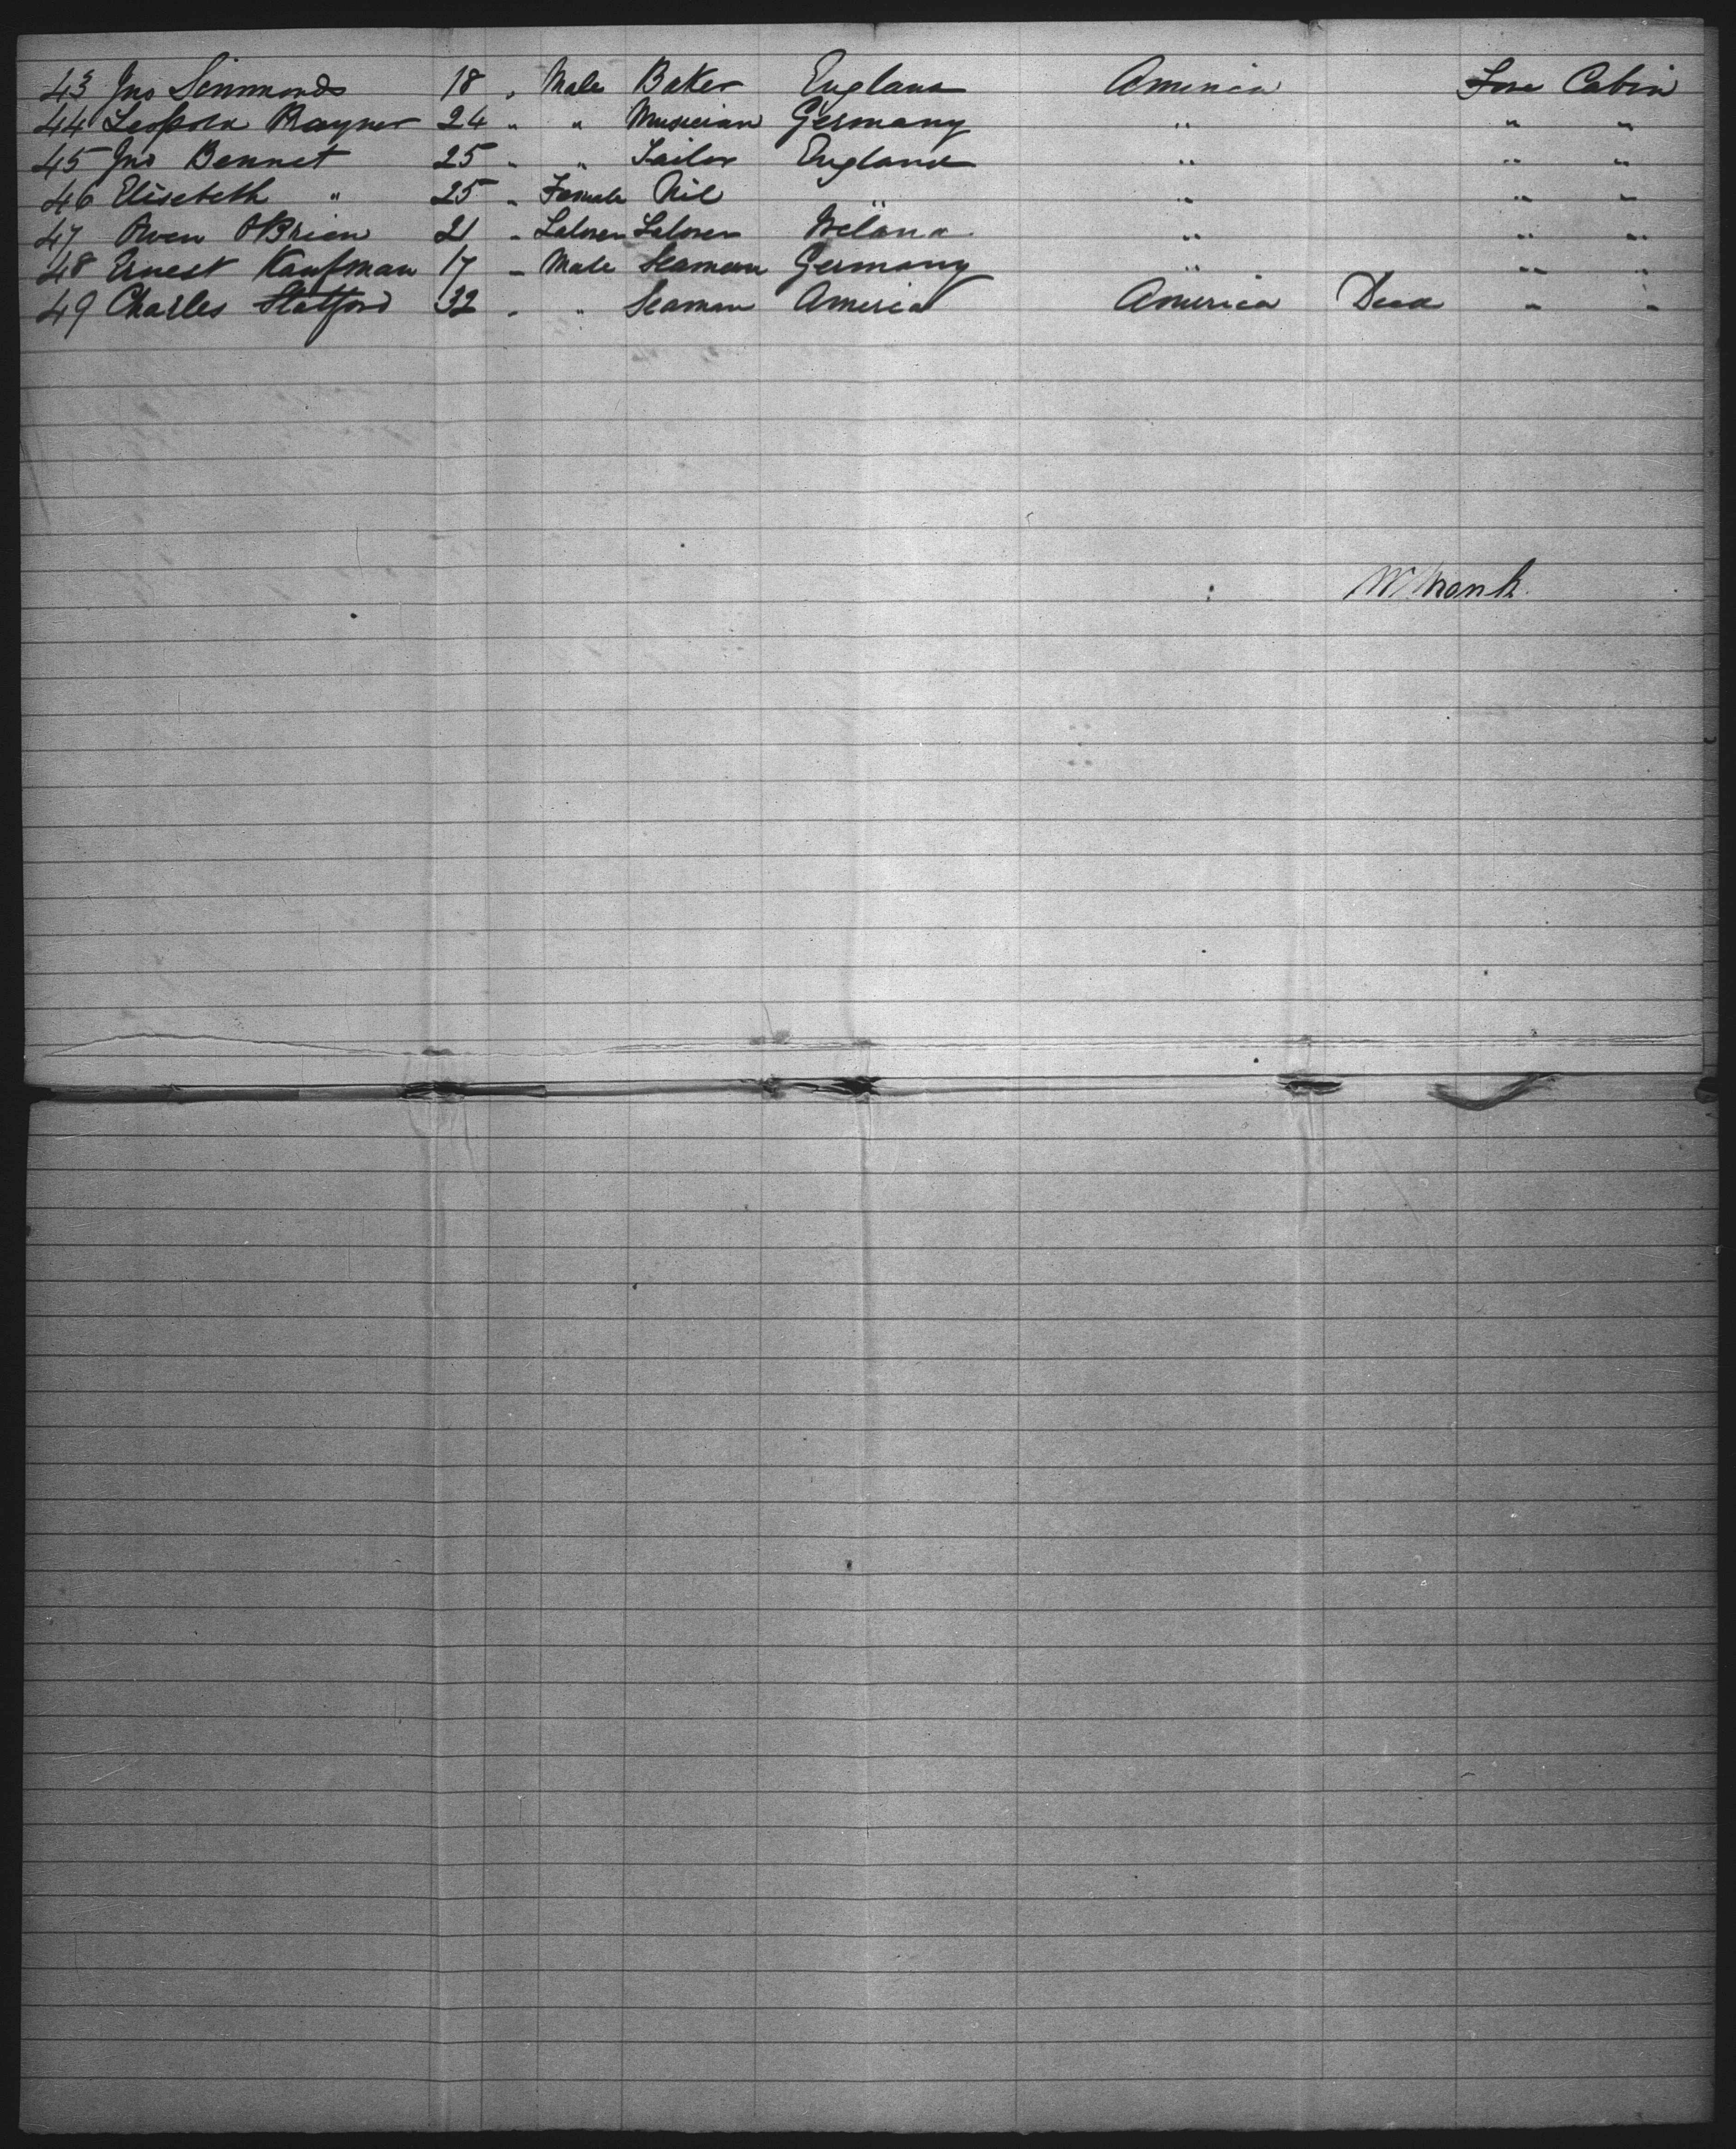 43 Jno Simmonds 18 " Male Baker England America Fore Cabin
44 Leopold Rayner 24 " " Musician Germany " " "
45 Jno Bennet 25 " " Tailor England " " "
46 Elisebeth " 25 " Female Nil " " " "
47 Owen O'Brien 21 " Laborer Laborer Ireland " " "
48 Ernest Kaufman 17 " Male Seaman Germany " " "
49 Charles Slatford 32 " " Seaman America America Dead " "
W. Monk.